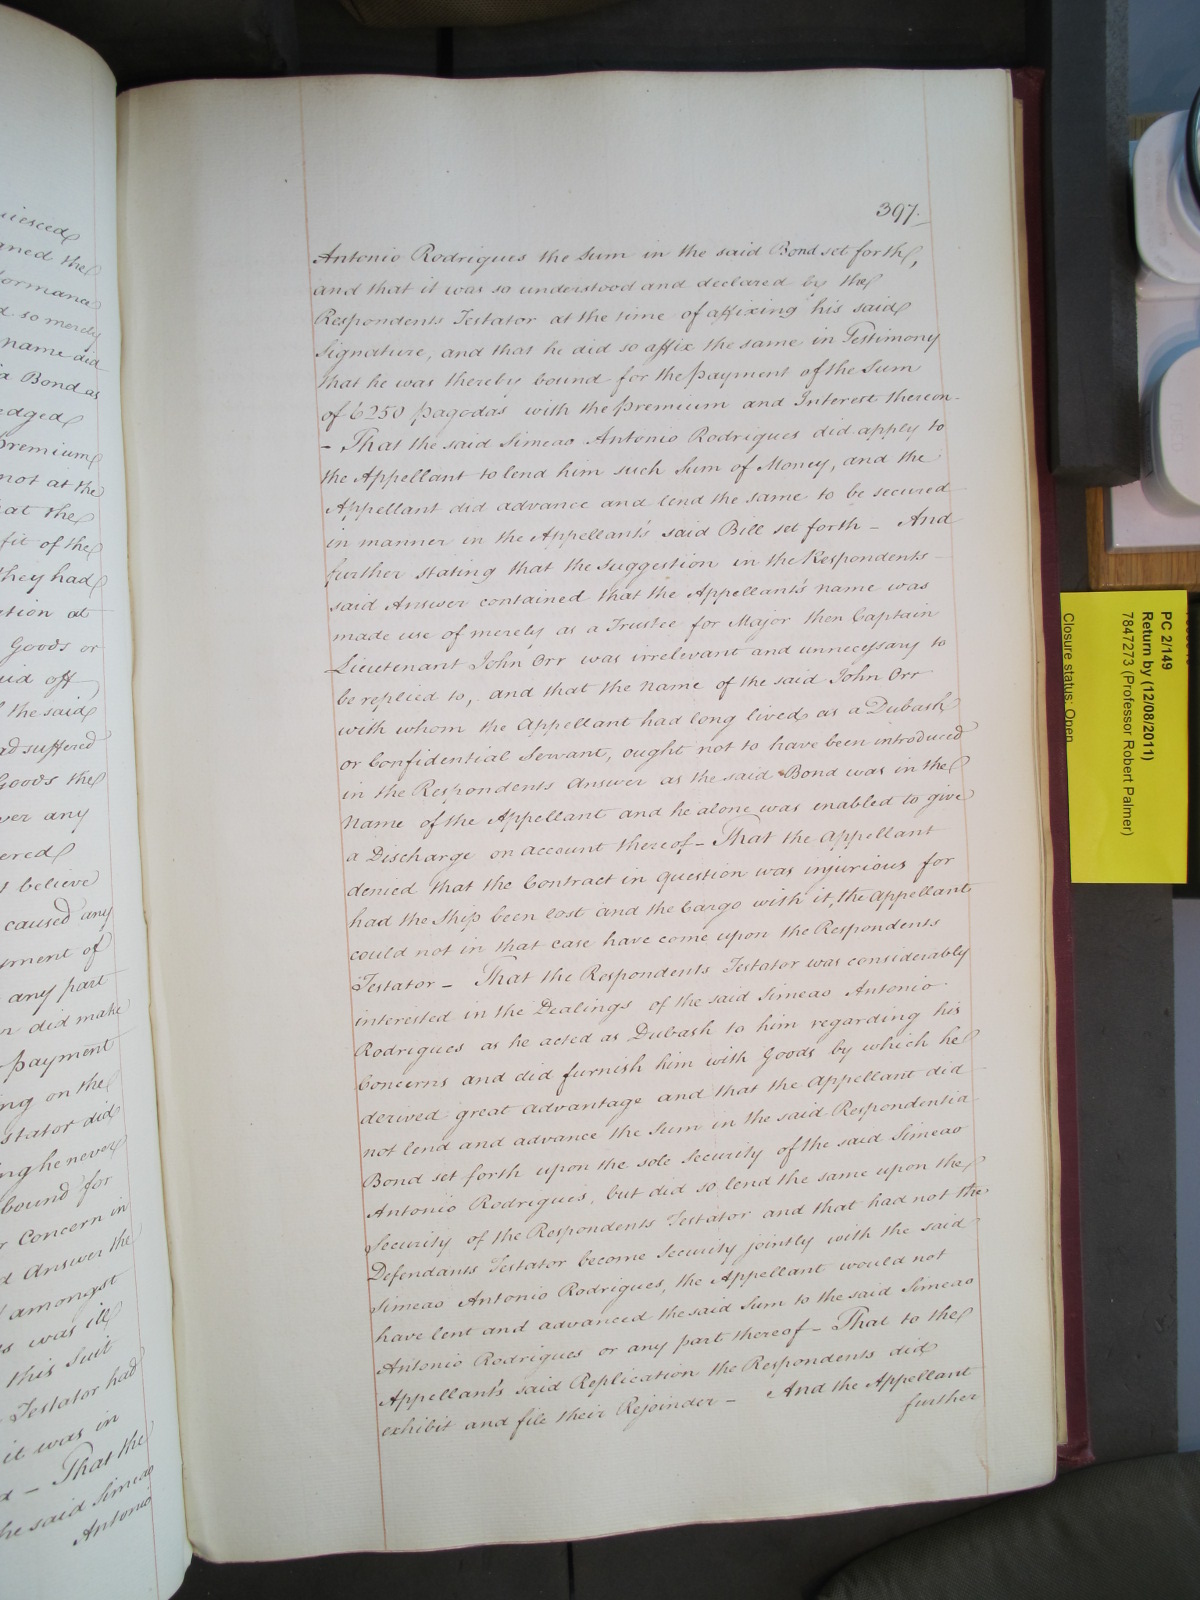 397.
Antonio Rodrigues the Sum in the said Bond set forth,
and that it was so understood and declared by the
Respondents Testator at the time of affixing his said
Signature, and that he did so affix the same in Testimony
that he was thereby bound for the payment of the Sum
of 6250 pagodas with the premium and Interest thereon-
- That the said Simeao Antonio Rodrigues did apply to
the Appellant to lend him such Sum of Money, and the
Appellant did advance and lend the same to be secured
in manner in the Appellant's said Bill set forth - And
further stating that the suggestion in the Respondents
said Answer contained that the Appellant's name was
made use of merely as a Trustee for Major then Captain
Lieutenant John Orr was irrelevant and unnecessary to
be replied to, and that the name of the said John Orr
with whom the Appellant had long lived as a Dubash
or Confidential Servant, ought not to have been introduced
in the Respondents Answer as the said Bond was in the
Name of the Appellant and he alone was enabled to give
a Discharge on account thereof - That the Appellant
denied that the Contract in question was injurious for
had the Ship been lost and the Cargo with it, the Appellants
could not in that case have come upon the Respondents
Testator - That the Respondents Testator was considerably
interested in the Dealings of the said Simeao Antonio
Rodrigues as he acted as Dubash to him regarding his
Concerns and did furnish him with Goods by which he
derived great advantage and that the Appellant did
not lend and advance the Sum in the said Respondentia
Bond set forth upon the sole Security of the said Simeao
Antonio Rodrigues, but did so lend the same upon the
Security of the Respondents Testator and that had not the
Defendants Testator become Security jointly with the said
Simeao Antonio Rodrigues, the Appellant would not
have lent and advanced the said Sum to the said Simeao
Antonio Rodrigues or any part thereof - That to the
Appellant's said Replication the Respondents did
exhibit and file their Rejoinder - And the Appellant
further
the
so merely
name did
Bond as
not at the
at the
fit of the
they had
at
Goods or
off
the said
suffered
Goods the
any
believe
caused any
of
any part
did make
payment
on the
did
he never
bound for
Concern in
Answer the
amongst
was ill
this Suit
Testator had
it was in
- That the
said Simeao
Antonio
PC 2/149
Return by (12/08/2011)
7847273 (Professor Robert Palmer)
Closure status: Open